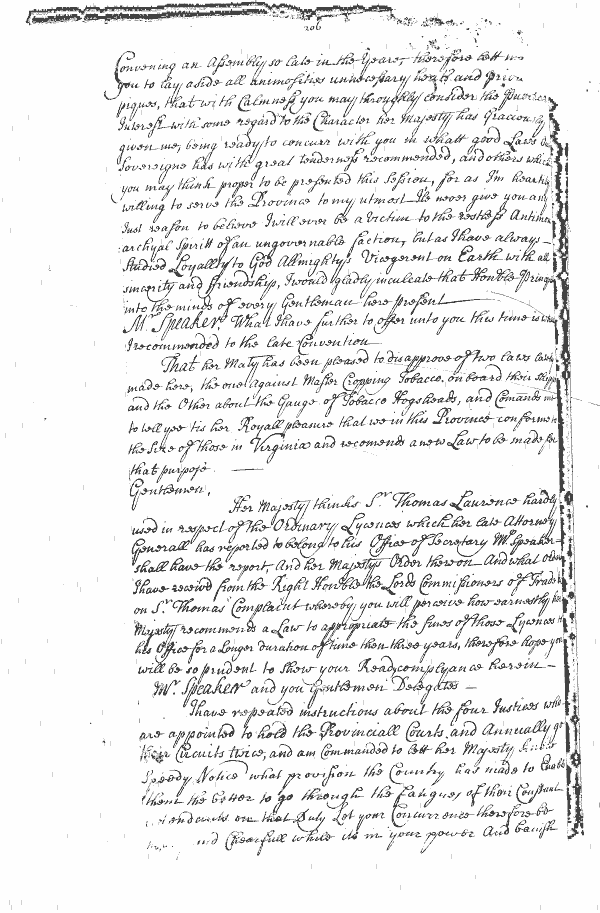 206
Convening an Assembly so late in the Yeare, therefore lett me
you to lay aside all animosities unnecessary heats and Priva
piques, that with Calmness you may throughly consider the Publick
Interest with some regard to the Character her Majesty has Graciously
given me, being ready to concurr with you in whatt good Laws
Sovereigne has with great tenderness recommended, and others which
you may think proper to be presented this Session, for as I'm heartily
willing to serve the Province to my utmost I'le never give you any
Just reason to believe I will ever be a Victim to the restless Antimon
archyal Spiritt of an ungovernable faction, but as I have always
Studied Loyalty to God Allmightys Vicegerent on Earth with all
sincerity and friendship, I would gladly inculcate that Honble Principle
into the minds of every Gentleman here present
Mr. Speaker. What I have further to offer unto you this time is what
I recommended to the late Convention
That her Maty has been pleased to disapprove of two Laws lately
made here, the one against Master Cropping Tobacco, on board their Ships
and the Other about the Gauge of Tobacco Hogsheads, and Comands me
to tell yee tis her Royall pleasure that we in this Province conforme to
the Size of those in Virginia and recomends a new Law to be made for
that purpose.
Gentlemen,
Her Majesty thinks Sr. Thomas Laurence hardly
used in respect of the Ordinary Lycences which her late Attorney
Generall has reported to belong to his Office of Secretary Mr. Speaker
shall have the report, And her Majestys Order thereon. And what orders
I have received from the Right Honble the Lords Commissioners of Trade
on Sr. Thomas' Complaint whereby you will perceive how earnestly her
Majesty recommends a Law to appropriate the fines of those Lycences to
his Office for a Longer duration of time then three years, therefore hope you
will be so prudent to shew your Ready complyance herein
Mr. Speaker and you Gentlemen Delegates
I have repeated instructions about the four Justices who
are appointed to hold the Provinciall Courts and Annually go
their Circuits twice, and am Commanded to lett her Majesty
Speedy Notice what provision the Country has made to Enable
them the better to go through the Fatigues of their Constant
on that Duty Let your Concurrence therefore be
and Chearfull while its in your power And banish